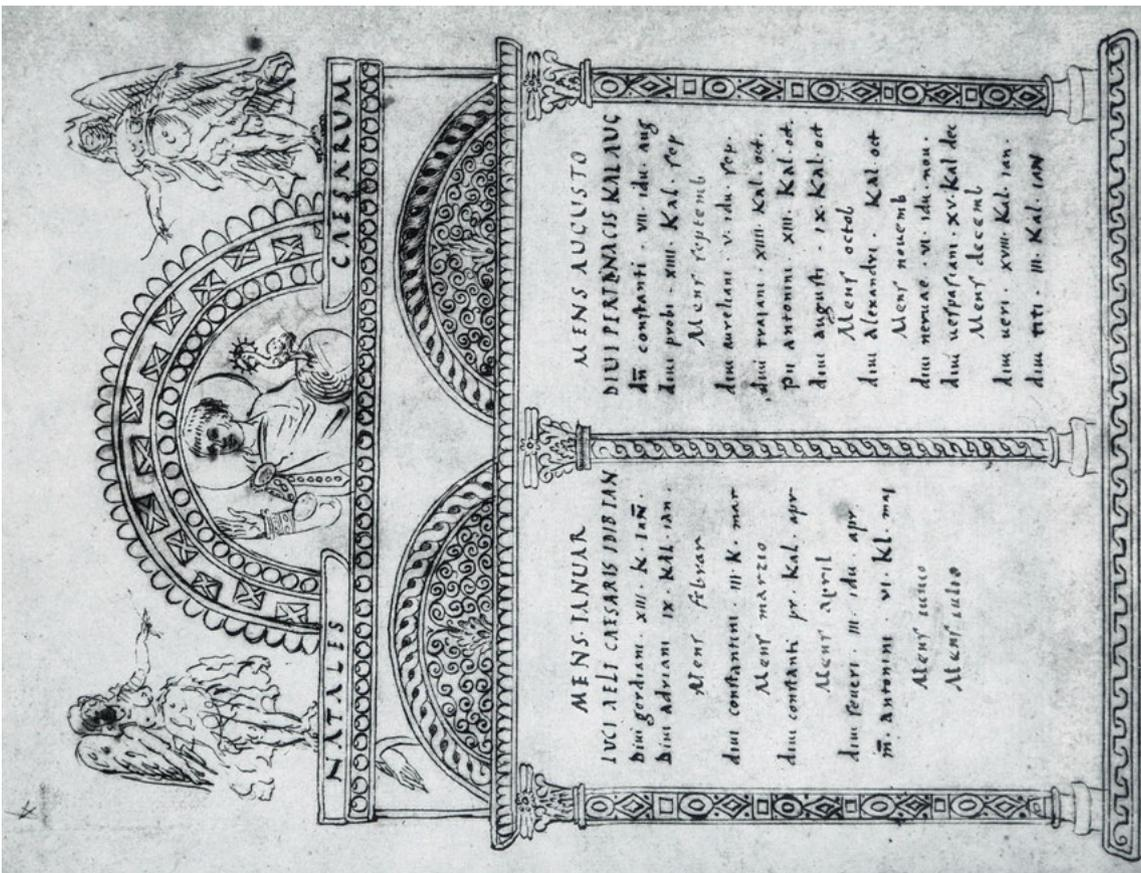 NATALES CAESARUM
MENS·IANUAR
LUCI AELI CAESARIS IDIB IAN
Diui gordiani · XIII · K · IAN̄
Diui adriani IX · Kal · ian
Mens februar
diui constantini · III · K · mar
Mens marzio
diui constanti pr · Kal · apr
Mens april
diui seueri · III · idu · apr
m̄ · antonini · VI · Kl · maj
Mens iunio
Mens iulio
MENS AUGUSTO
DIUI PERTINACIS KAL AUG
dn̄ constanti · VIII · idu · aug
diui probi · XIIII · Kal · sep
Mens septemb
diui aureliani · V · idu · sep·
diui traiani · XIIII · Kal · oct·
pii antonini · XIII · Kal · oct·
diui augusti · IX · Kal · oct
Mens octob
diui alexandri · Kal oct
Mens nouemb
diui neruae · VI · idu · nou·
diui uespasiani · XV · Kal dec
Mens decemb
diui ueri · XVIII · Kal · ian·
diui titi · III · Kal · IAN